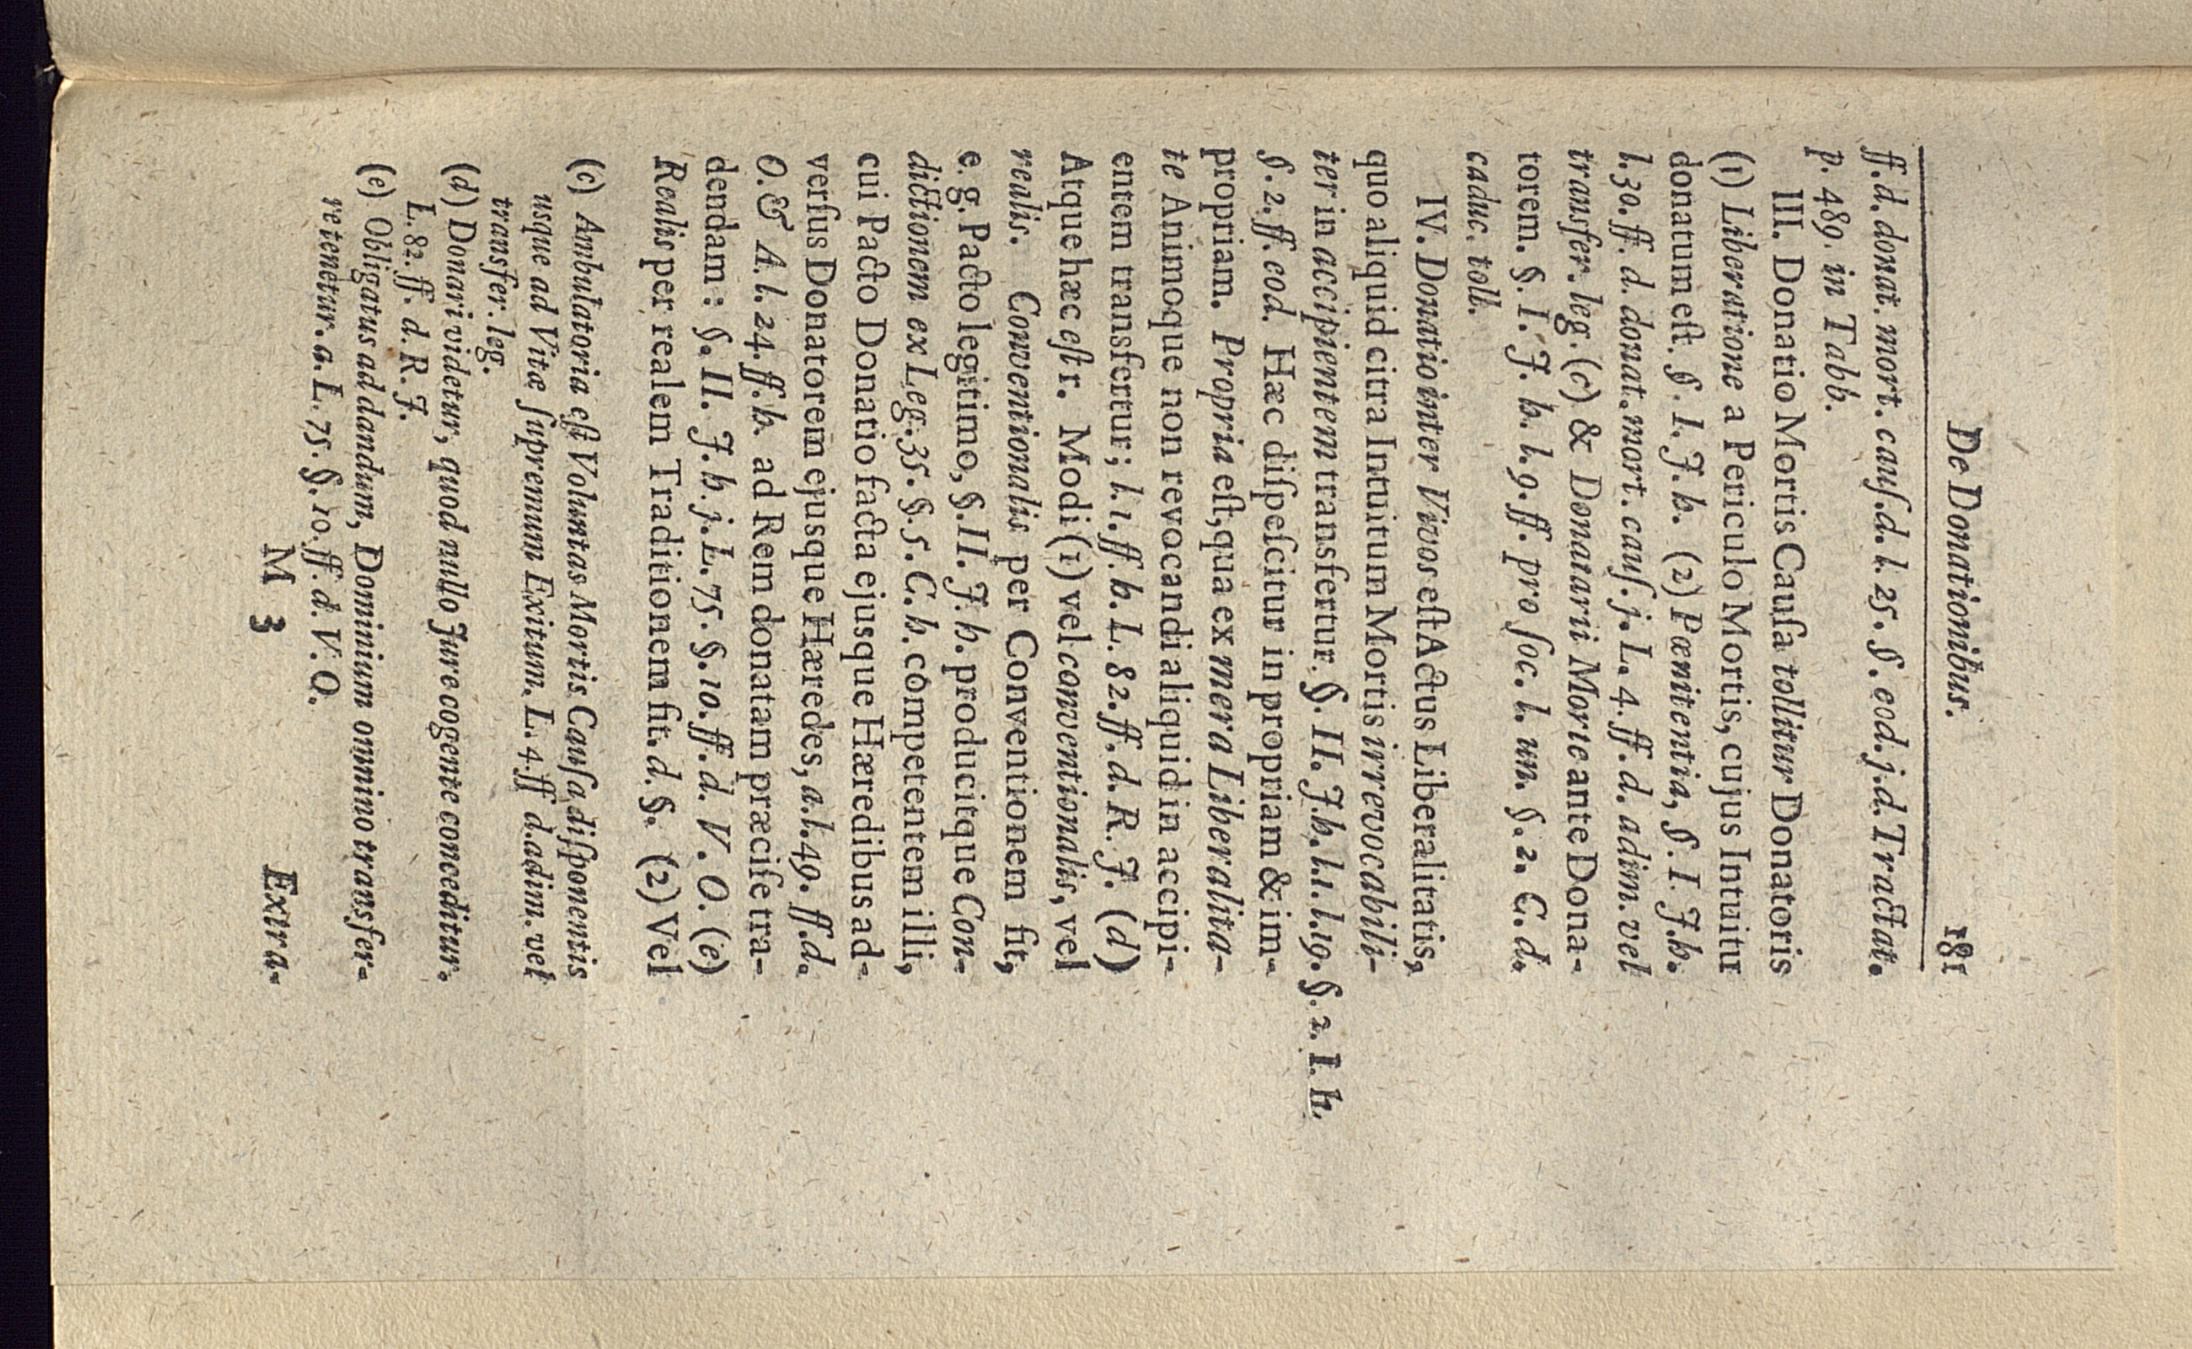 De Donationibus. 181
ff. d. donat. mort. cauſ. d. l. 25. §. eod. j. d. Tractat.
p. 489. in Tabb.
III. Donatio Mortis Cauſa tollitur Donatoris
(1) Liberatione a Periculo Mortis, cujus Intuitu
donatum eſt. §. I. J. h. (2) Pœnitentia, §. I. J. h.
l. 30. ff. d. donat. mort. cauſ. j. L. 4. ff. d. adim. vel
transfer. leg. (c) & Donatarii Morte ante Dona-
torem. §. I. J. h. l. 9. ff. pro ſoc. l. un. §. 2. C. d.
caduc. toll.
IV. Donatio inter Vivos eſt Actus Liberalitatis,
quo aliquid citra Intuitum Mortis irrevocabili-
ter in accipientem transfertur. §. II. J. h. l. 1. l. 19. §. 2. I. h.
§. 2. ff. eod. Hæc diſpeſcitur in propriam & im-
propriam. Propria eſt, qua ex mera Liberalita-
te Animoque non revocandi aliquid in accipi-
entem transfertur; l. 1. ff. h. L. 82. ff. d. R. J. (d)
Atque hæc eſt r. Modi (1) vel conventionalis, vel
realis. Conventionalis per Conventionem fit,
e. g. Pacto legitimo, §. II. J. h. producitque Con-
dictionem ex Leg. 35. §. 5. C. h. competentem illi,
cui Pacto Donatio facta ejusque Hæredibus ad-
verſus Donatorem ejusque Hæredes, a. l. 49. ff. d.
O. & A. l. 24. ff. h. ad Rem donatam præciſe tra-
dendam: §. II. J. h. j. L. 75. §. 10. ff. d. V. O. (e)
Realis per realem Traditionem fit. d. §. (2) Vel
(c) Ambulatoria eſt Voluntas Mortis Cauſa diſponentis
usque ad Vitæ ſupremum Exitum. L. 4. ff d. adim. vel
transfer. leg.
(d) Donari videtur, quod nullo Jure cogente conceditur.
L. 82. ff. d. R. J.
(e) Obligatus ad dandum, Dominium omnino transfer-
re tenetur. a. L. 75. §. 10. ff. d. V. O.
M 3 Extra-